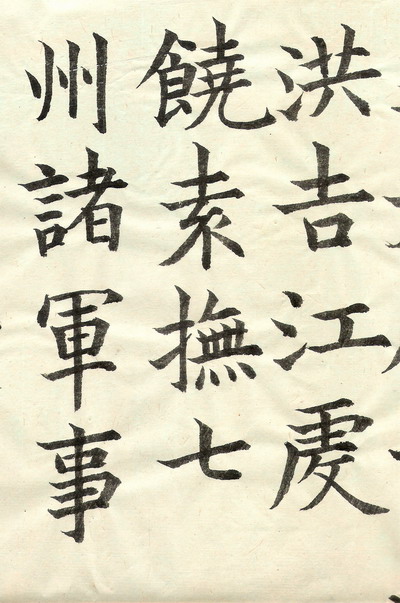 洪吉江虔
饒袁撫七
州諸軍事